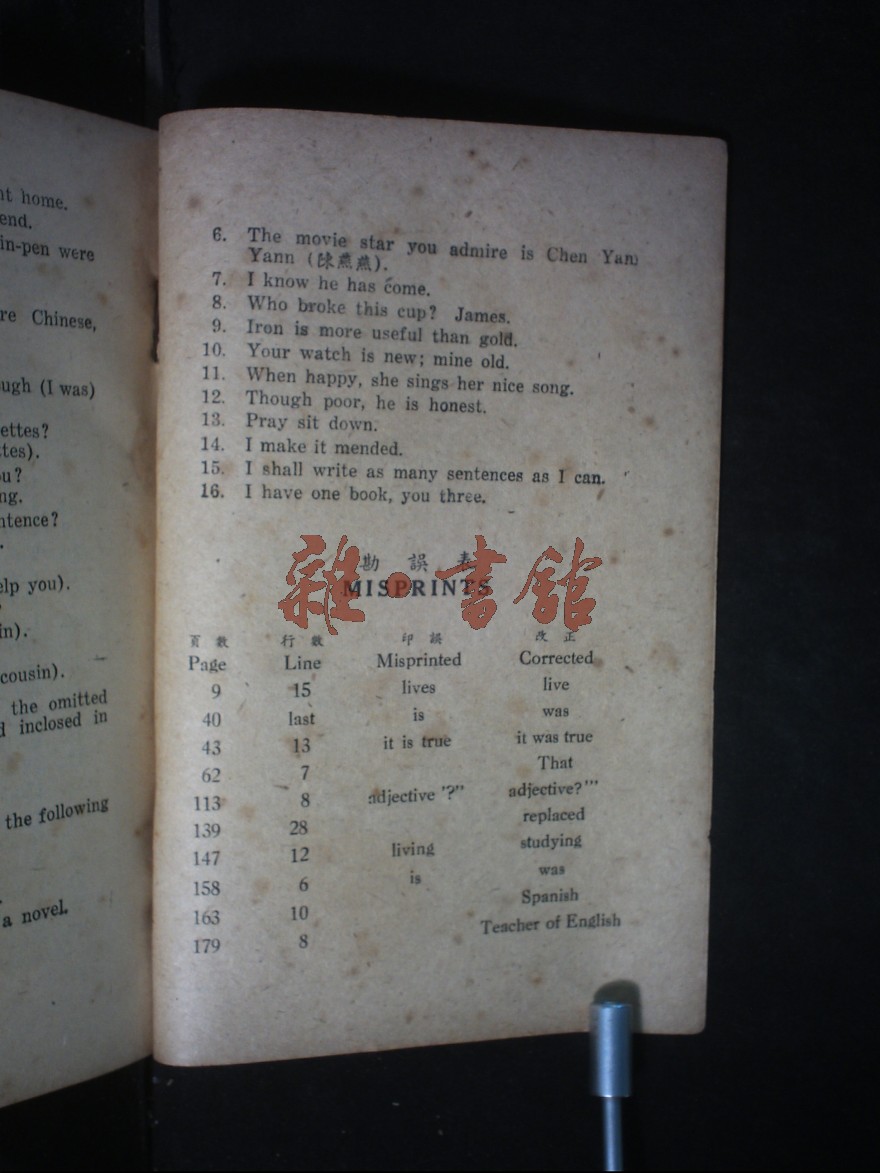 nt home.
end.
in-pen were
re Chinese,
ugh (I was)
ettes?
ttes).
ou?
ng.
ntence?
elp you).
in).
cousin).
the omitted
d inclosed in
the following
a novel.
6. The movie star you admire is Chen Yan
Yann (陳燕燕).
7. I know he has come.
8. Who broke this cup? James.
9. Iron is more useful than gold.
10. Your watch is new; mine old.
11. When happy, she sings her nice song.
12. Though poor, he is honest.
13. Pray sit down.
14. I make it mended.
15. I shall write as many sentences as I can.
16. I have one book, you three.
勘 誤 表
MISPRINTS
雜·書館
頁數 行數 印誤 改正
Page Line Misprinted Corrected
9 15 lives live
40 last is was
43 13 it is true it was true
62 7 That
113 8 adjective '?" adjective?'"
139 28 replaced
147 12 living studying
158 6 is was
163 10 Spanish
179 8 Teacher of English